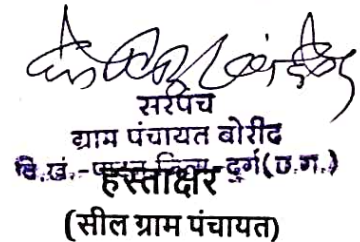 सरपंच
ग्राम पंचायत बोरीद
वि.खं.- पाटन जिला-दुर्ग(छ.ग.)
हस्ताक्षर
(सील ग्राम पंचायत)